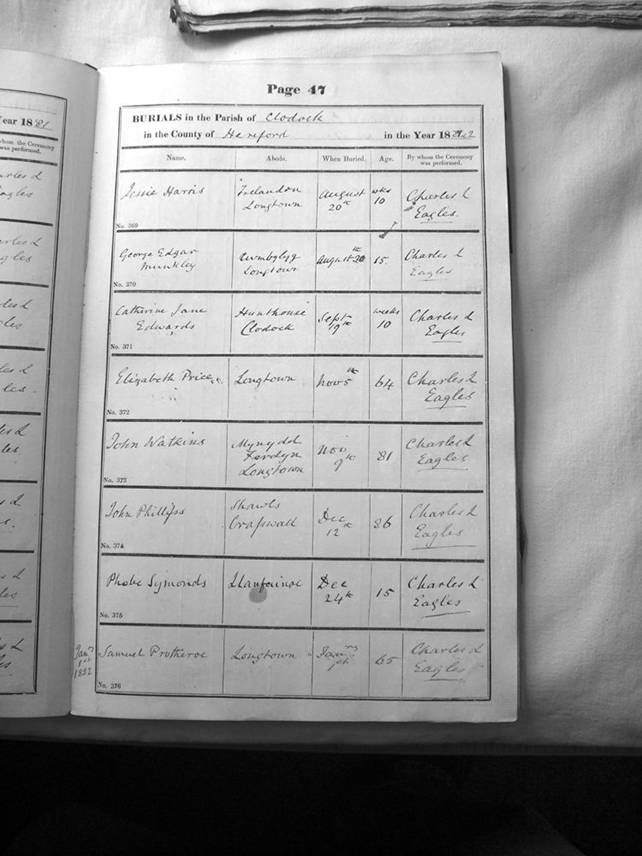 Page 47
BURIALS in the Parish of Clodock
in the County of Hereford in the Year 18
Name. Abode. When Buried. Age. By whom the Ceremony was performed.
Jessie Harris Longtown August 20th wks 10 Charles L Eagles
No. 369
George Edgar Munkley Longtown August 15 Charles L Eagles
No. 370
Catherine Jane Edwards Hunthouse Clodock Sept 19th weeks 10 Charles L Eagles
No. 371
Elizabeth Price Longtown Nov 5th 64 Charles L Eagles
No. 372
John Watkins Mynydd Ferdyn Longtown Nov 9th 81 Charles L Eagles
No. 373
John Phillips Craswall Dec 12th 86 Charles L Eagles
No. 374
Phobe Symonds Llanfeinoe Dec 24th 15 Charles L Eagles
No. 375
Jany 1st 1882 Samuel Protheroe Longtown Jany 1st 65 Charles L Eagles
No. 376
Year 1881
whom the Ceremony was performed.